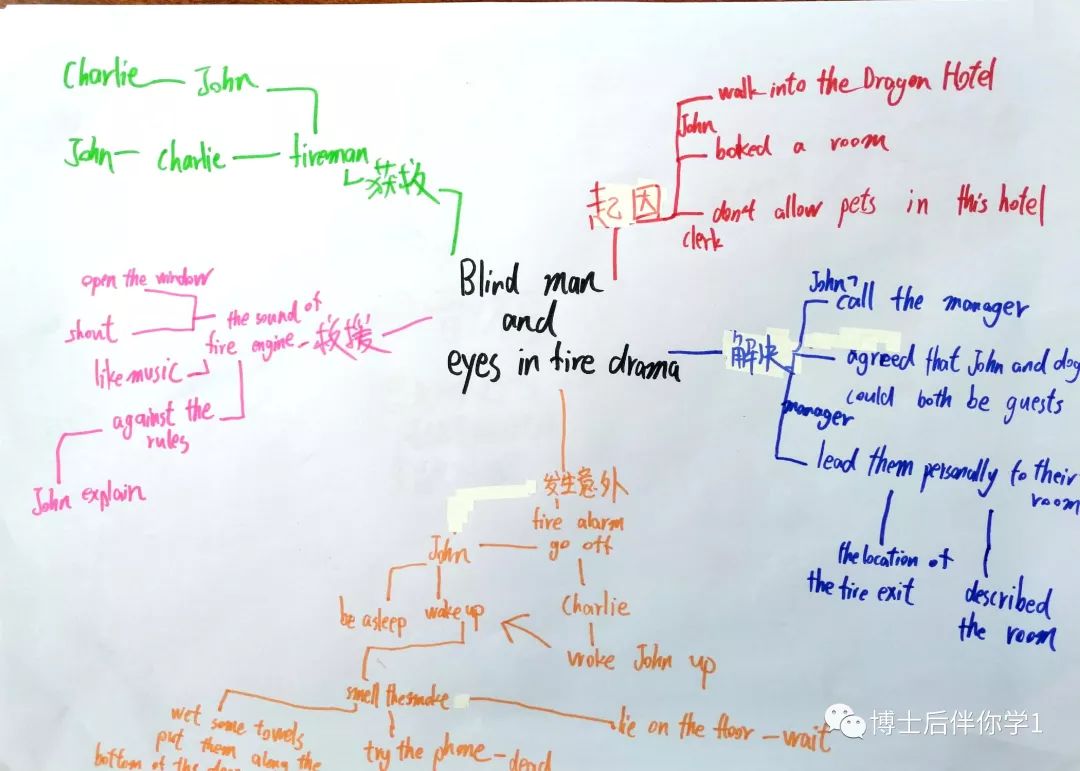 Blind man
and
eyes in fire drama
起因
John
walk into the Dragon Hotel
boked a room
clerk
don't allow pets in this hotel
解决
John
call the manager
manager
agreed that John and dog
could both be guests
lead them personally to their
room
the location of
the fire exit
described
the room
发生意外
fire alarm
go off
John
be asleep
wake up
Charlie
wroke John up
smell the smoke
wet some towels
put them along the
bottom of the door
try the phone – dead
lie on the floor – wait
救援
the sound of
fire engine
open the window
shout
like music
against the
rules
John explain
获救
fireman
Charlie John
John Charlie
博士后伴你学1